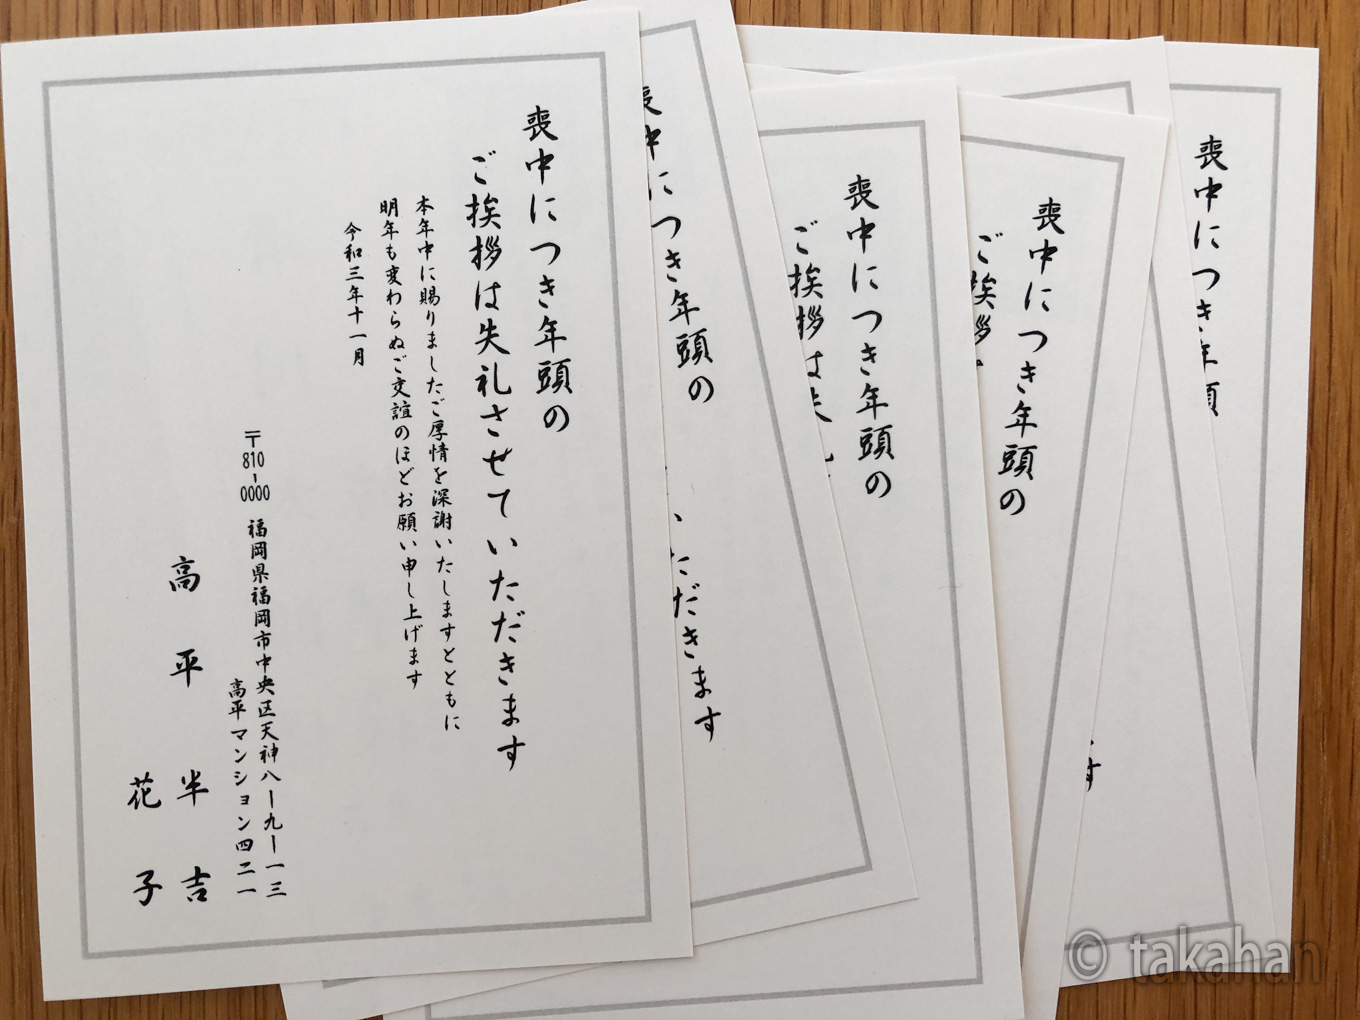 喪中につき年頭の
ご挨拶は失礼させていただきます
本年中に賜りましたご厚情を深謝いたしますとともに
明年も変わらぬご交誼のほどお願い申し上げます
令和三年十一月
〒810-0000 福岡県福岡市中央区天神八ー九ー一三
高平マンション四二一
高平 半吉
花子
喪中につき年頭の
いただきます
喪中につき年頭の
ご挨拶は失礼
喪中につき年頭の
ご挨拶
喪中につき年頭
す
© takahan